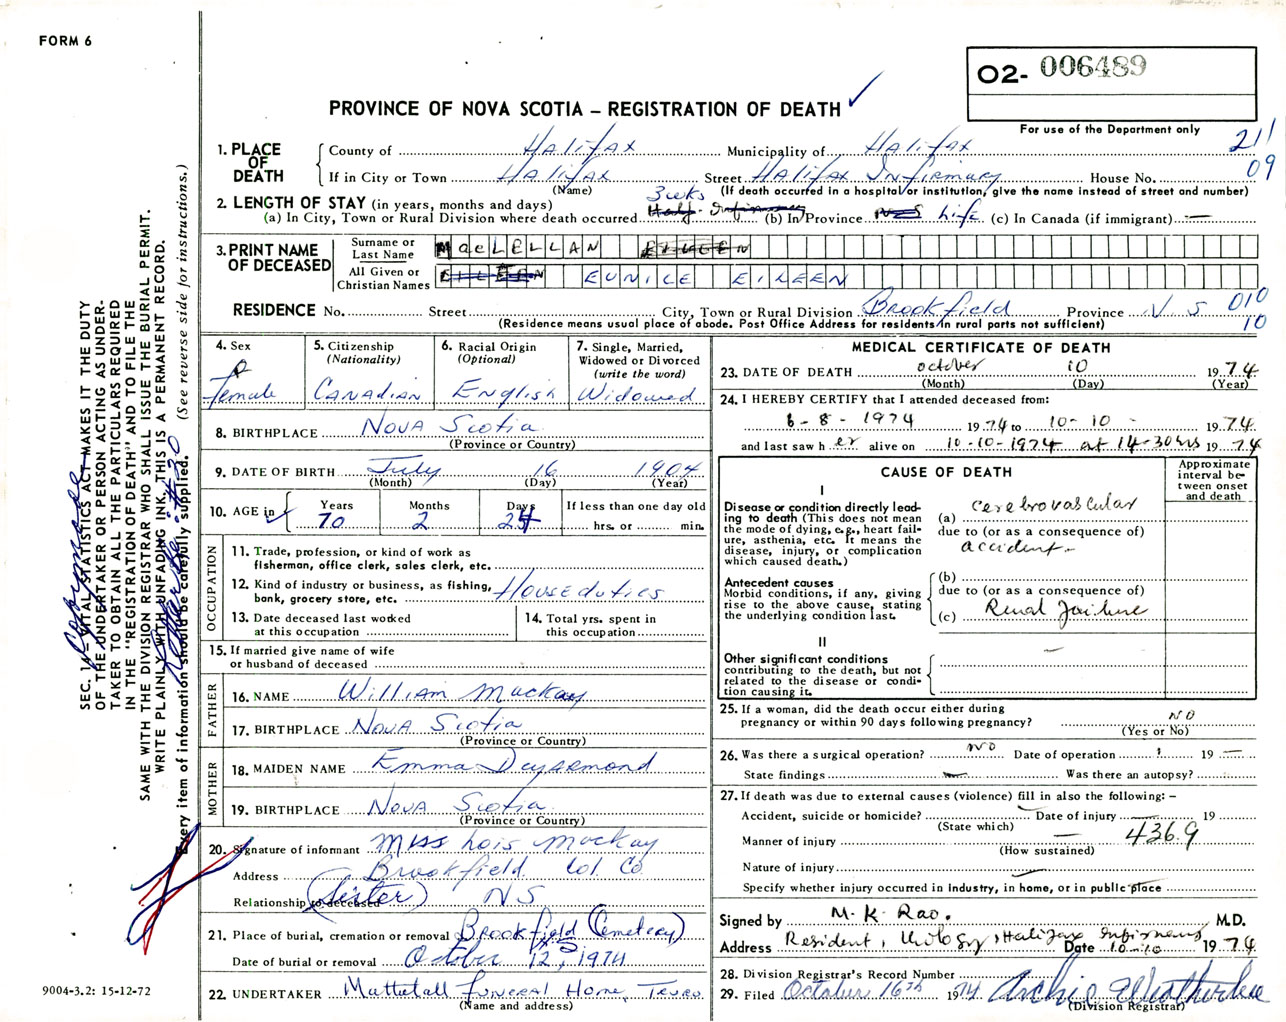 FORM 6
O2- 006489
PROVINCE OF NOVA SCOTIA – REGISTRATION OF DEATH ✓
For use of the Department only
211
09
1. PLACE OF DEATH
County of Halifax Municipality of Halifax
If in City or Town Halifax Street Halifax Infirmary House No.
(Name) (If death occurred in a hospital or institution, give the name instead of street and number)
2. LENGTH OF STAY (in years, months and days) 3 wks
(a) In City, Town or Rural Division where death occurred (b) In Province NS Life (c) In Canada (if immigrant) —
3. PRINT NAME OF DECEASED
Surname or Last Name MacLELLAN EILEEN
All Given or Christian Names EILEEN EUNICE EILEEN
RESIDENCE No. Street City, Town or Rural Division Brookfield Province N.S 010
10
(Residence means usual place of abode. Post Office Address for residents in rural parts not sufficient)
4. Sex
Female
5. Citizenship
(Nationality)
Canadian
6. Racial Origin
(Optional)
English
7. Single, Married, Widowed or Divorced
(write the word)
Widowed
8. BIRTHPLACE Nova Scotia
(Province or Country)
9. DATE OF BIRTH July 16 1904
(Month) (Day) (Year)
10. AGE in
Years Months Days If less than one day old
70 2 24 hrs. or min.
OCCUPATION
11. Trade, profession, or kind of work as fisherman, office clerk, sales clerk, etc.
12. Kind of industry or business, as fishing, bank, grocery store, etc. Houseduties
13. Date deceased last worked at this occupation
14. Total yrs. spent in this occupation
15. If married give name of wife or husband of deceased
FATHER
16. NAME William Mackay
17. BIRTHPLACE Nova Scotia
(Province or Country)
MOTHER
18. MAIDEN NAME Emma Deyarmond
19. BIRTHPLACE Nova Scotia
(Province or Country)
20. Signature of informant Miss Lois Mackay
Address Brookfield Col. Co
Relationship to deceased (Sister) NS
21. Place of burial, cremation or removal Brookfield (Cemetery)
Date of burial or removal October 12, 1974
22. UNDERTAKER Mattatall Funeral Home, Truro
(Name and address)
MEDICAL CERTIFICATE OF DEATH
23. DATE OF DEATH october 10 1974
(Month) (Day) (Year)
24. I HEREBY CERTIFY that I attended deceased from:
6-8-1974 1974 to 10-10- 1974
and last saw h er alive on 10-10-1974 at 14-30hrs 1974
CAUSE OF DEATH
Approximate interval between onset and death
I
Disease or condition directly leading to death (This does not mean the mode of dying, e.g., heart failure, asthenia, etc. It means the disease, injury, or complication which caused death.)
(a) cerebrovascular
due to (or as a consequence of)
accident
Antecedent causes
Morbid conditions, if any, giving rise to the above cause, stating the underlying condition last.
(b)
due to (or as a consequence of)
(c) Renal failure
II
Other significant conditions
contributing to the death, but not related to the disease or condition causing it.
25. If a woman, did the death occur either during pregnancy or within 90 days following pregnancy? NO
(Yes or No)
26. Was there a surgical operation? NO Date of operation 19 —
State findings — Was there an autopsy?
27. If death was due to external causes (violence) fill in also the following: –
Accident, suicide or homicide? Date of injury 19
(State which)
Manner of injury 436.9
(How sustained)
Nature of injury
Specify whether injury occurred in industry, in home, or in public place
Signed by M. K. Rao. M.D.
Address Resident, Urology, Halifax Infirmary Date 10-10 1974
28. Division Registrar's Record Number
29. Filed October 16th 1974 Archie Weatherbee
(Division Registrar)
SEC. 14 – VITAL STATISTICS ACT MAKES IT THE DUTY
OF THE UNDERTAKER OR PERSON ACTING AS UNDER-
TAKER TO OBTAIN ALL THE PARTICULARS REQUIRED
IN THE "REGISTRATION OF DEATH" AND TO FILE THE
SAME WITH THE DIVISION REGISTRAR WHO SHALL ISSUE THE BURIAL PERMIT.
WRITE PLAINLY WITH UNFADING INK, THIS IS A PERMANENT RECORD.
Every item of information should be carefully supplied. (See reverse side for instructions.)
9004-3.2: 15-12-72